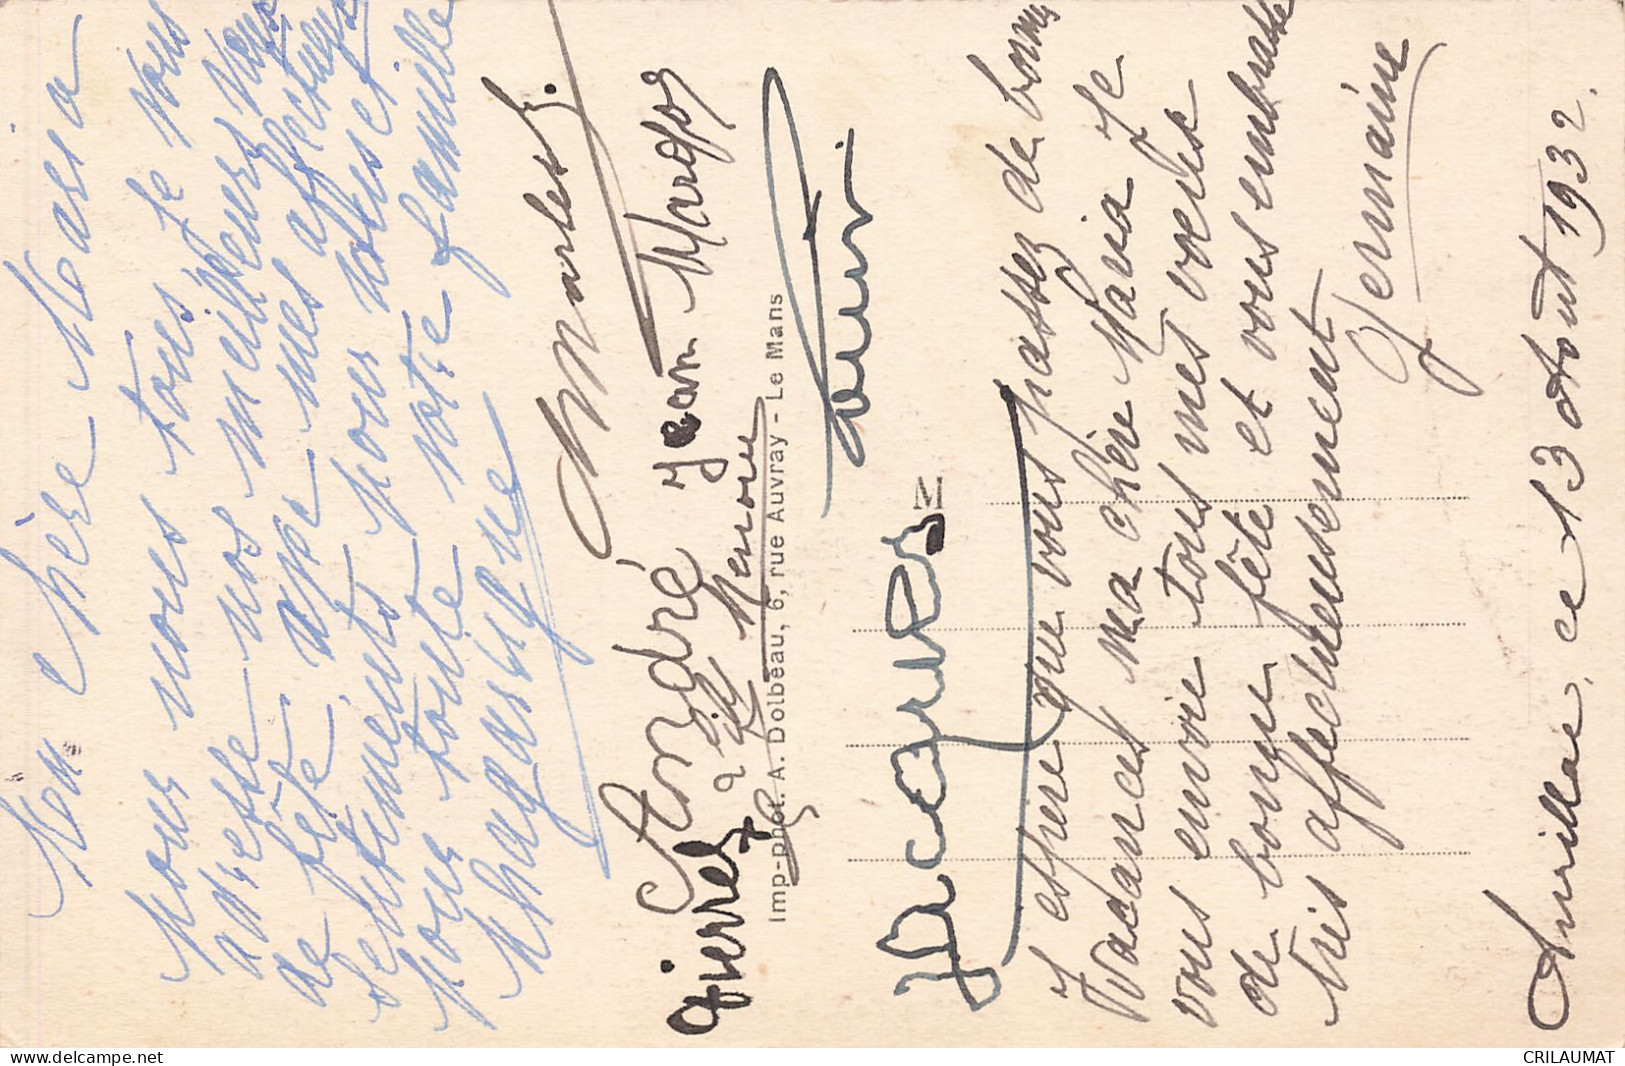 Ma chère Maria
Pour nous tous je vous
adresse nos meilleurs vœux
de fête avec mes affectueux
sentiments pour vous et
pour toute votre famille
Marles
André
Jean Margos
Pierre
Imp-phot. A. Dolbeau, 6, rue Auvray - Le Mans
Jacques
J'espère que vous passez de bonnes
vacances ma chère Maria Je
vous envoie tous mes vœux
de bonne fête et vous embrasse
très affectueusement
Germaine
Avrillac, ce 13 Août 1932.
CRILAUMAT